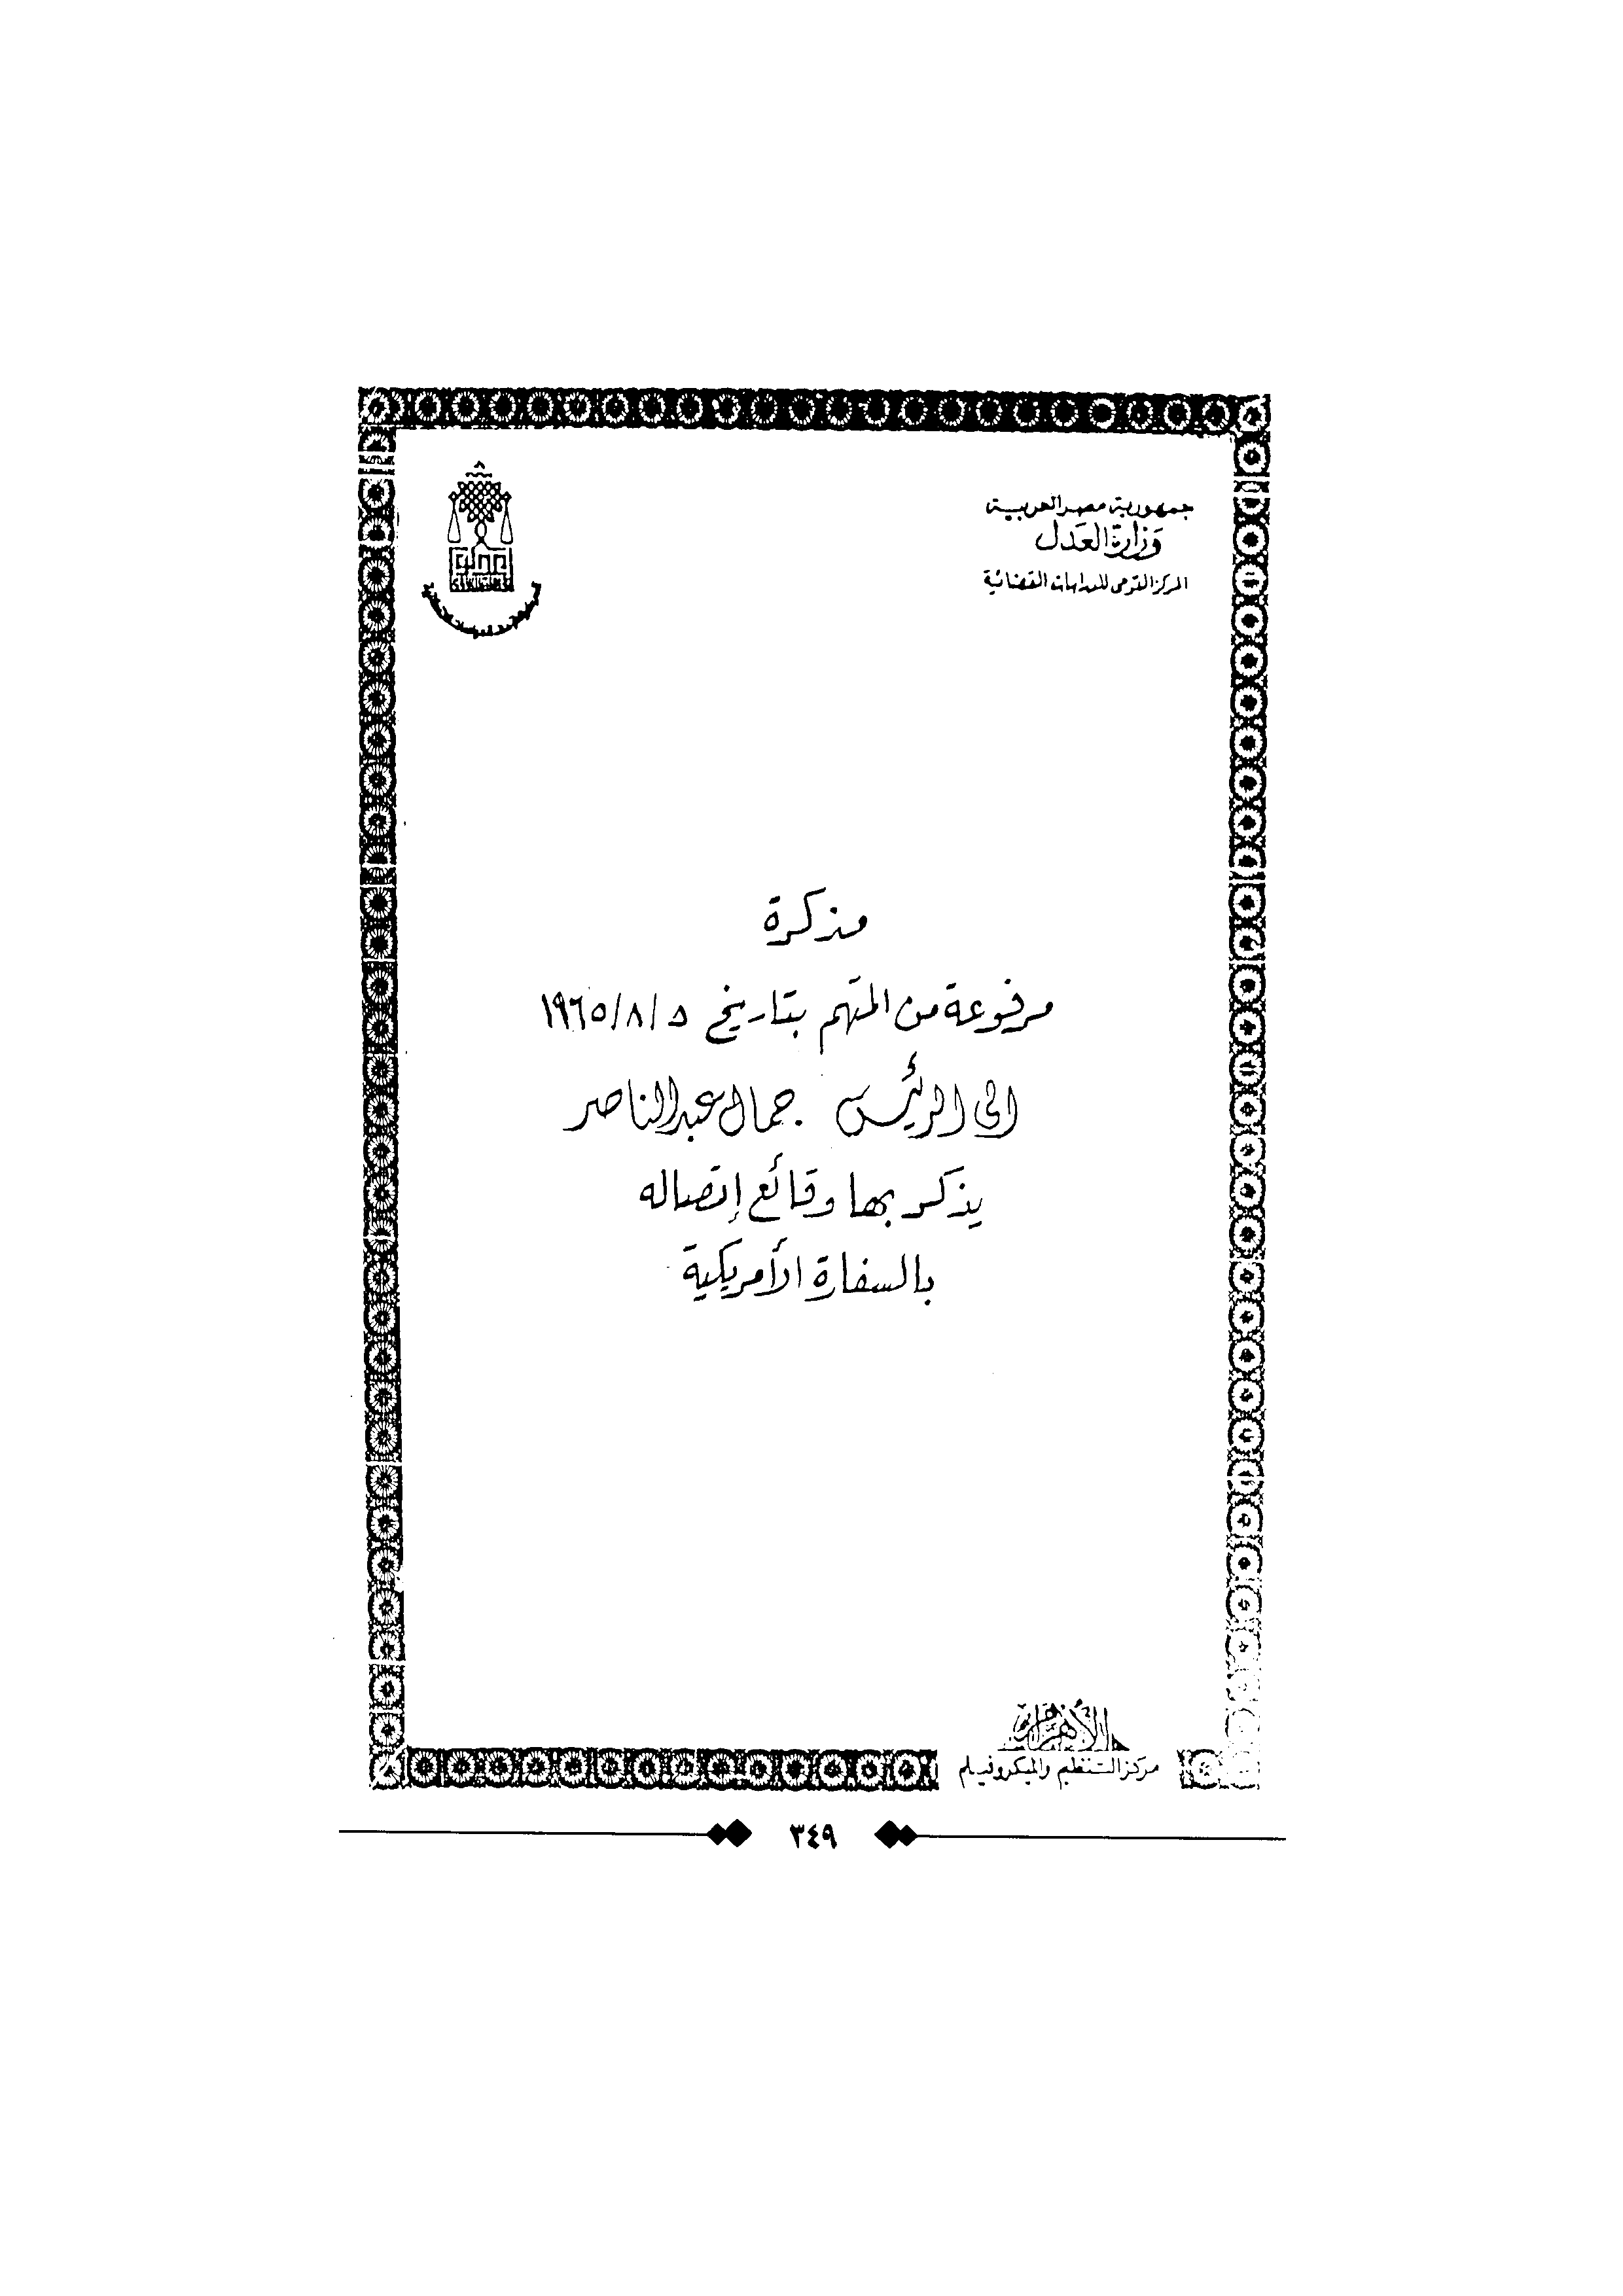 جمهورية مصر العربية
وزارة العدل
المركز القومى للدراسات القضائية
مذكرة
مرفوعة من المتهم بتاريخ ٥/٨/١٩٦٥
الى الرئيس جمال عبد الناصر
يذكر بها وقائع إتصاله
بالسفارة الأمريكية
الأهرام
مركز التنظيم والميكروفيلم
٣٤٩